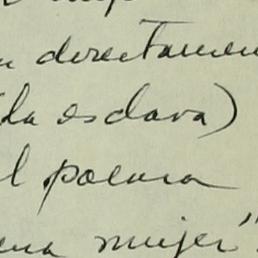 directamen
la esclava)
el poema
ena mujer"